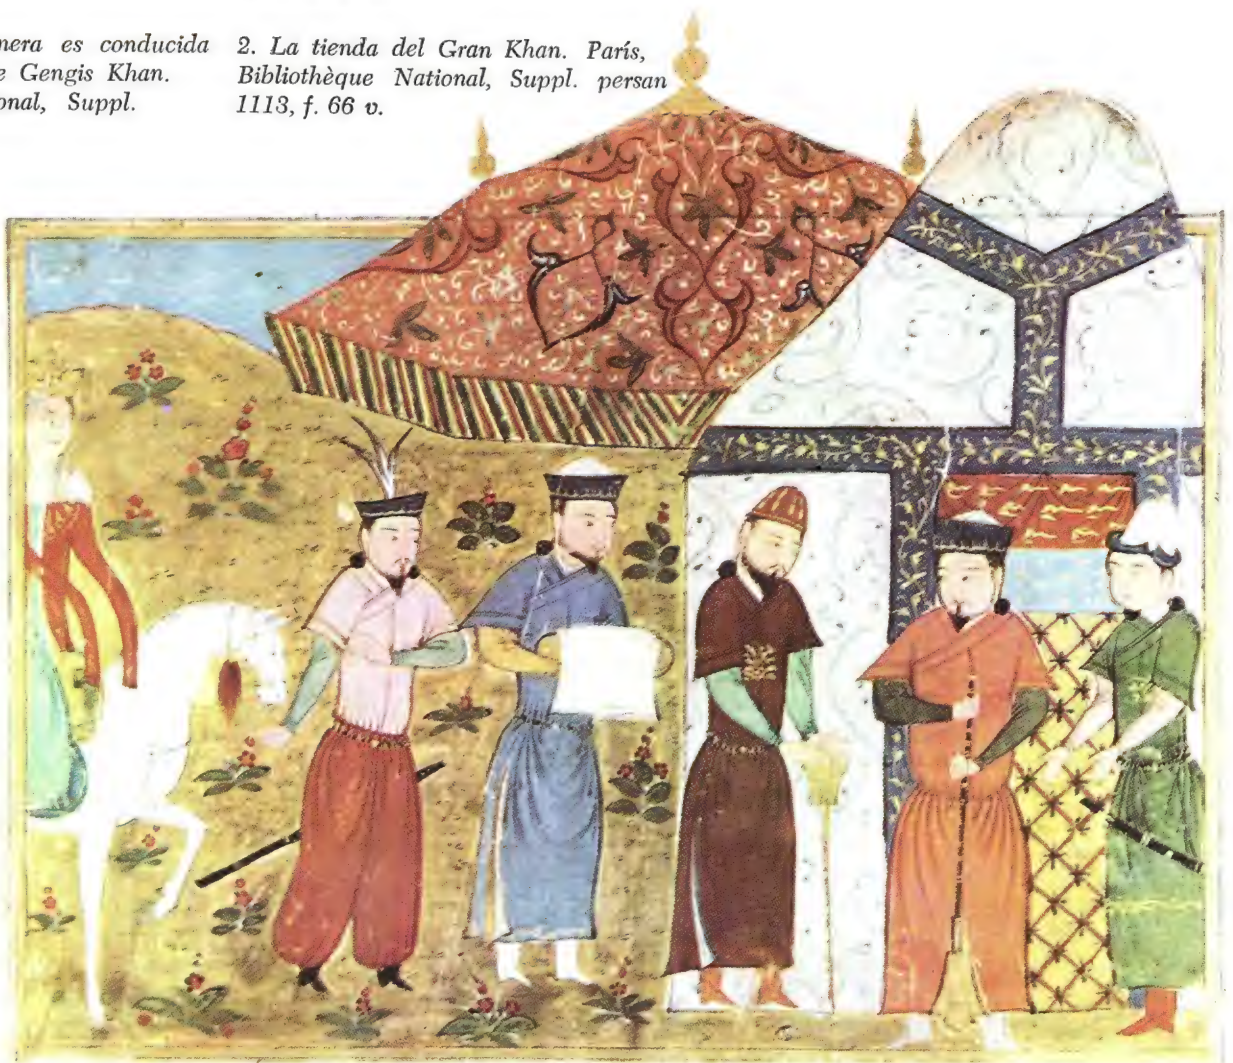 nera es conducida
e Gengis Khan.
onal, Suppl.
2. La tienda del Gran Khan. París,
Bibliothèque National, Suppl. persan
1113, f. 66 v.